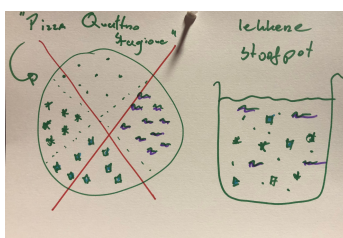 "Pizza Quattro
Stagione"
lekkere
stoofpot